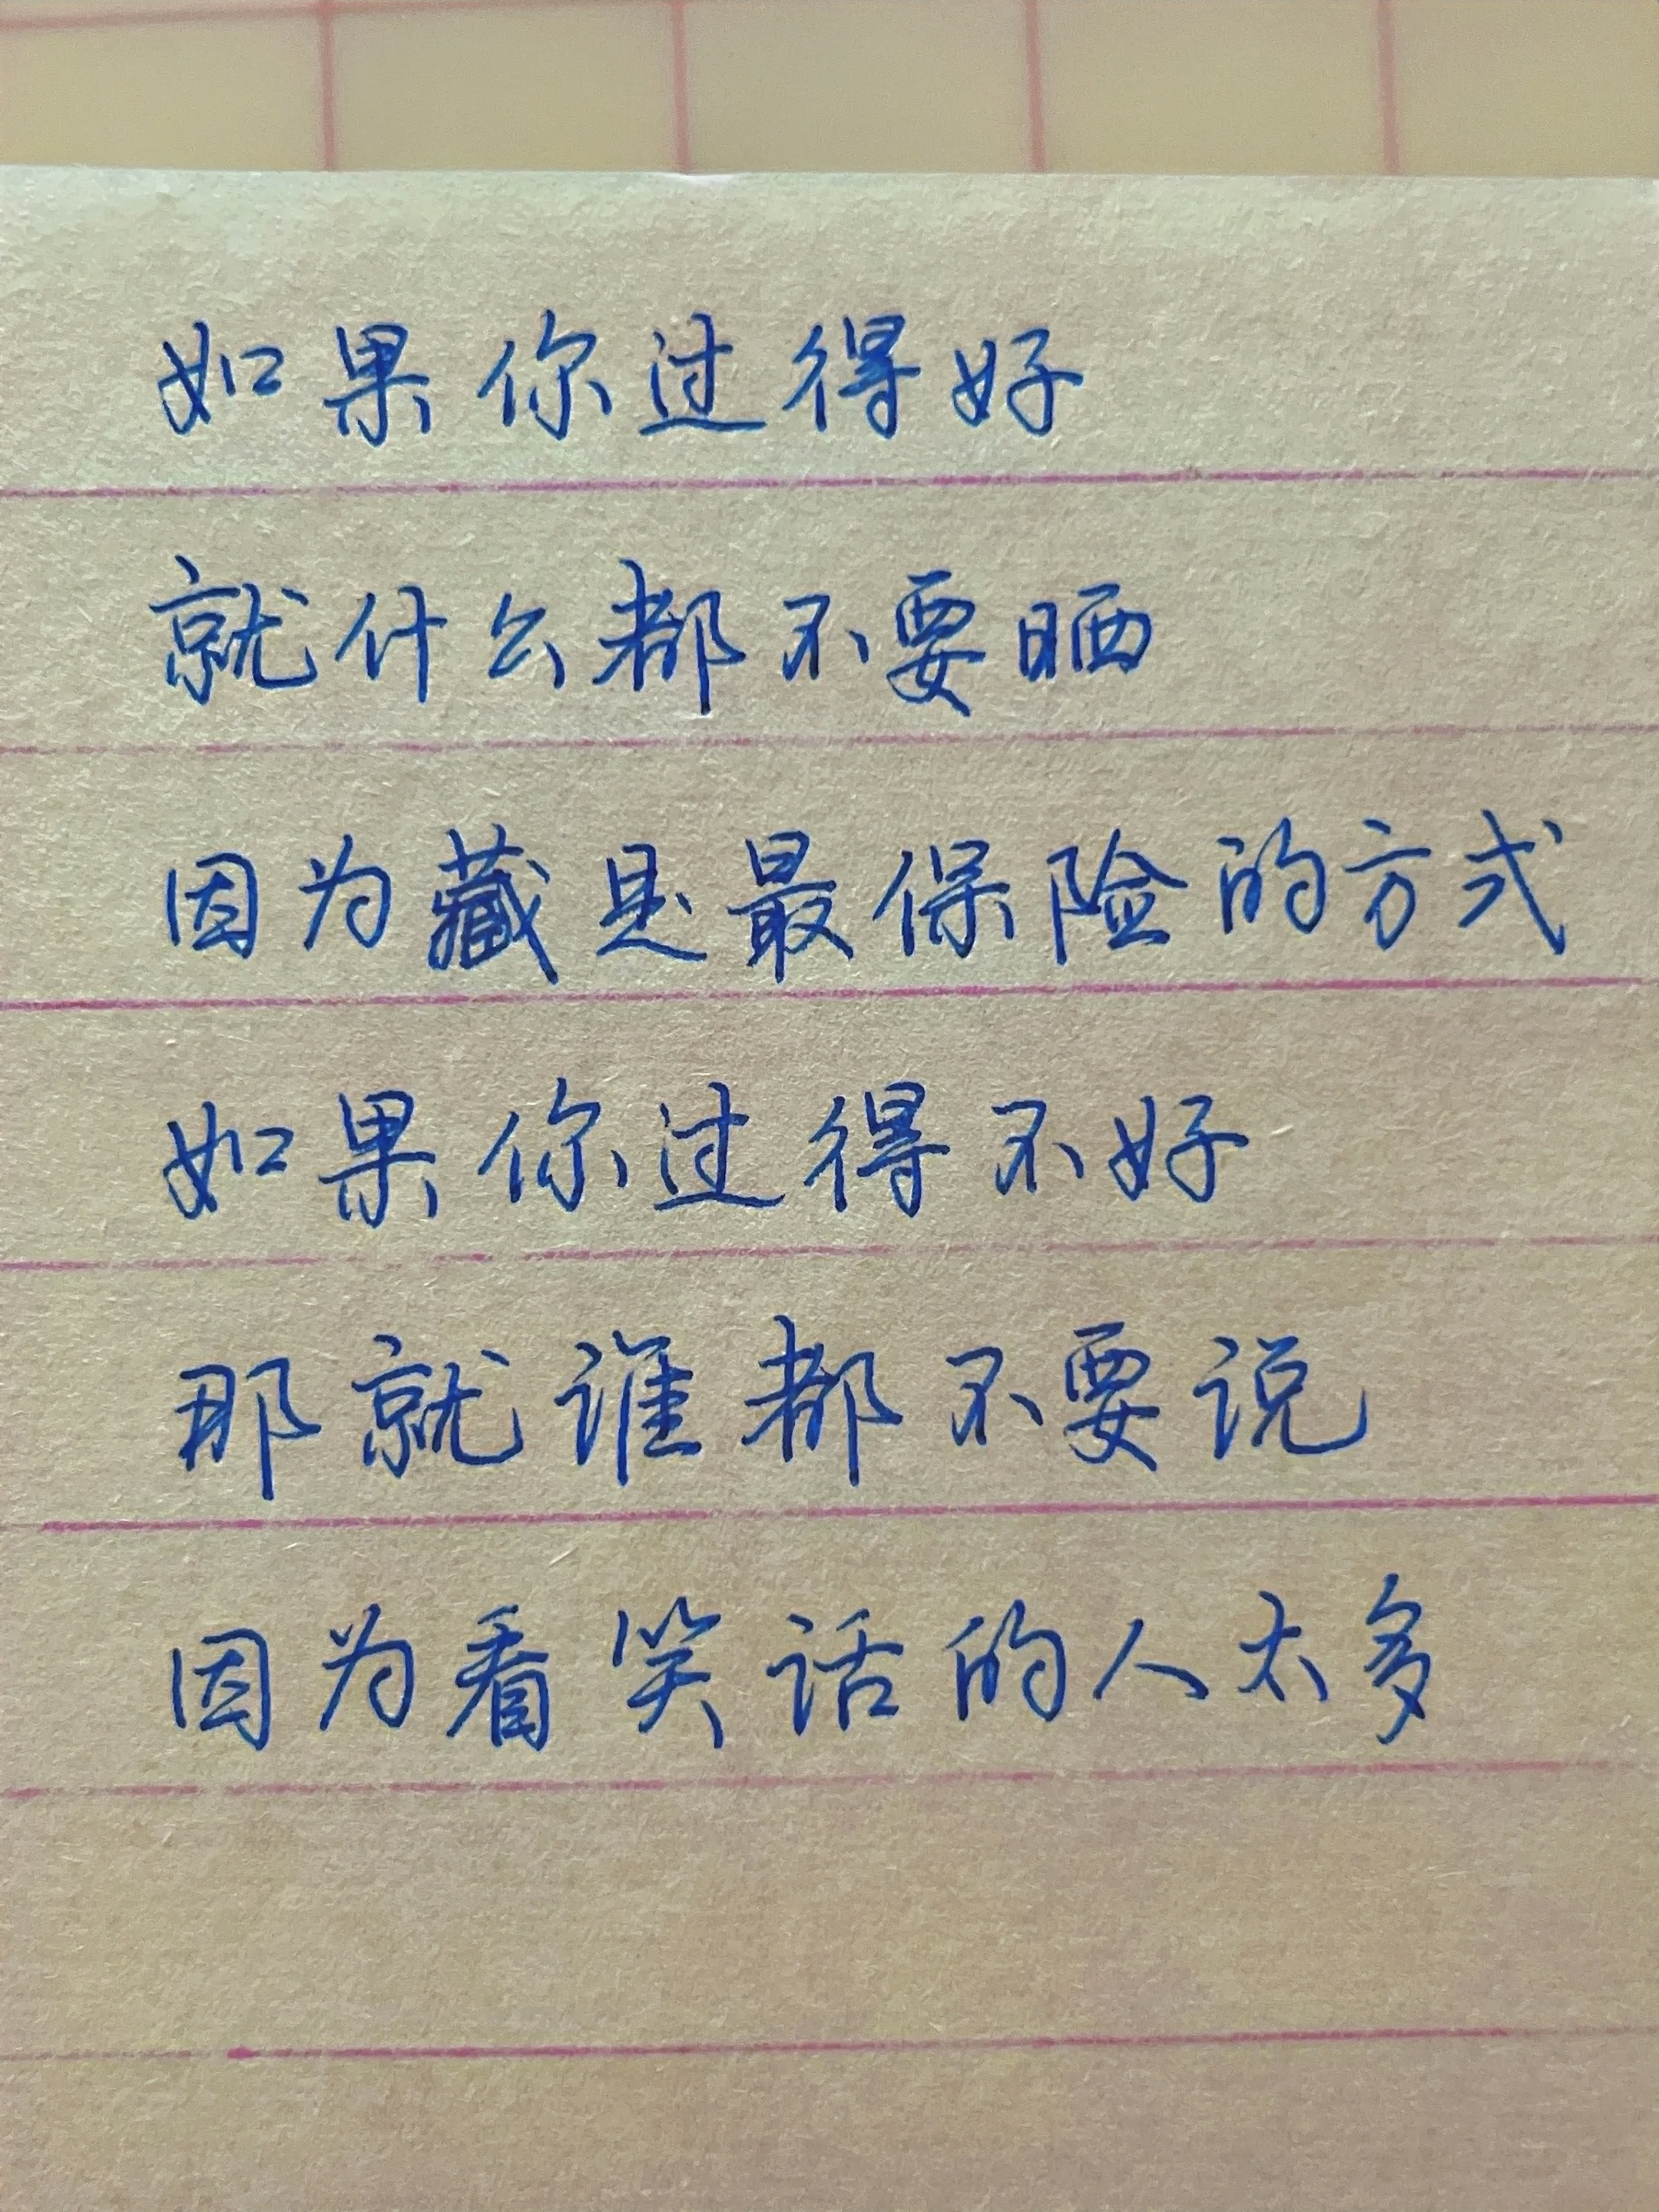 如果你过得好
就什么都不要晒
因为藏是最保险的方式
如果你过得不好
那就谁都不要说
因为看笑话的人太多